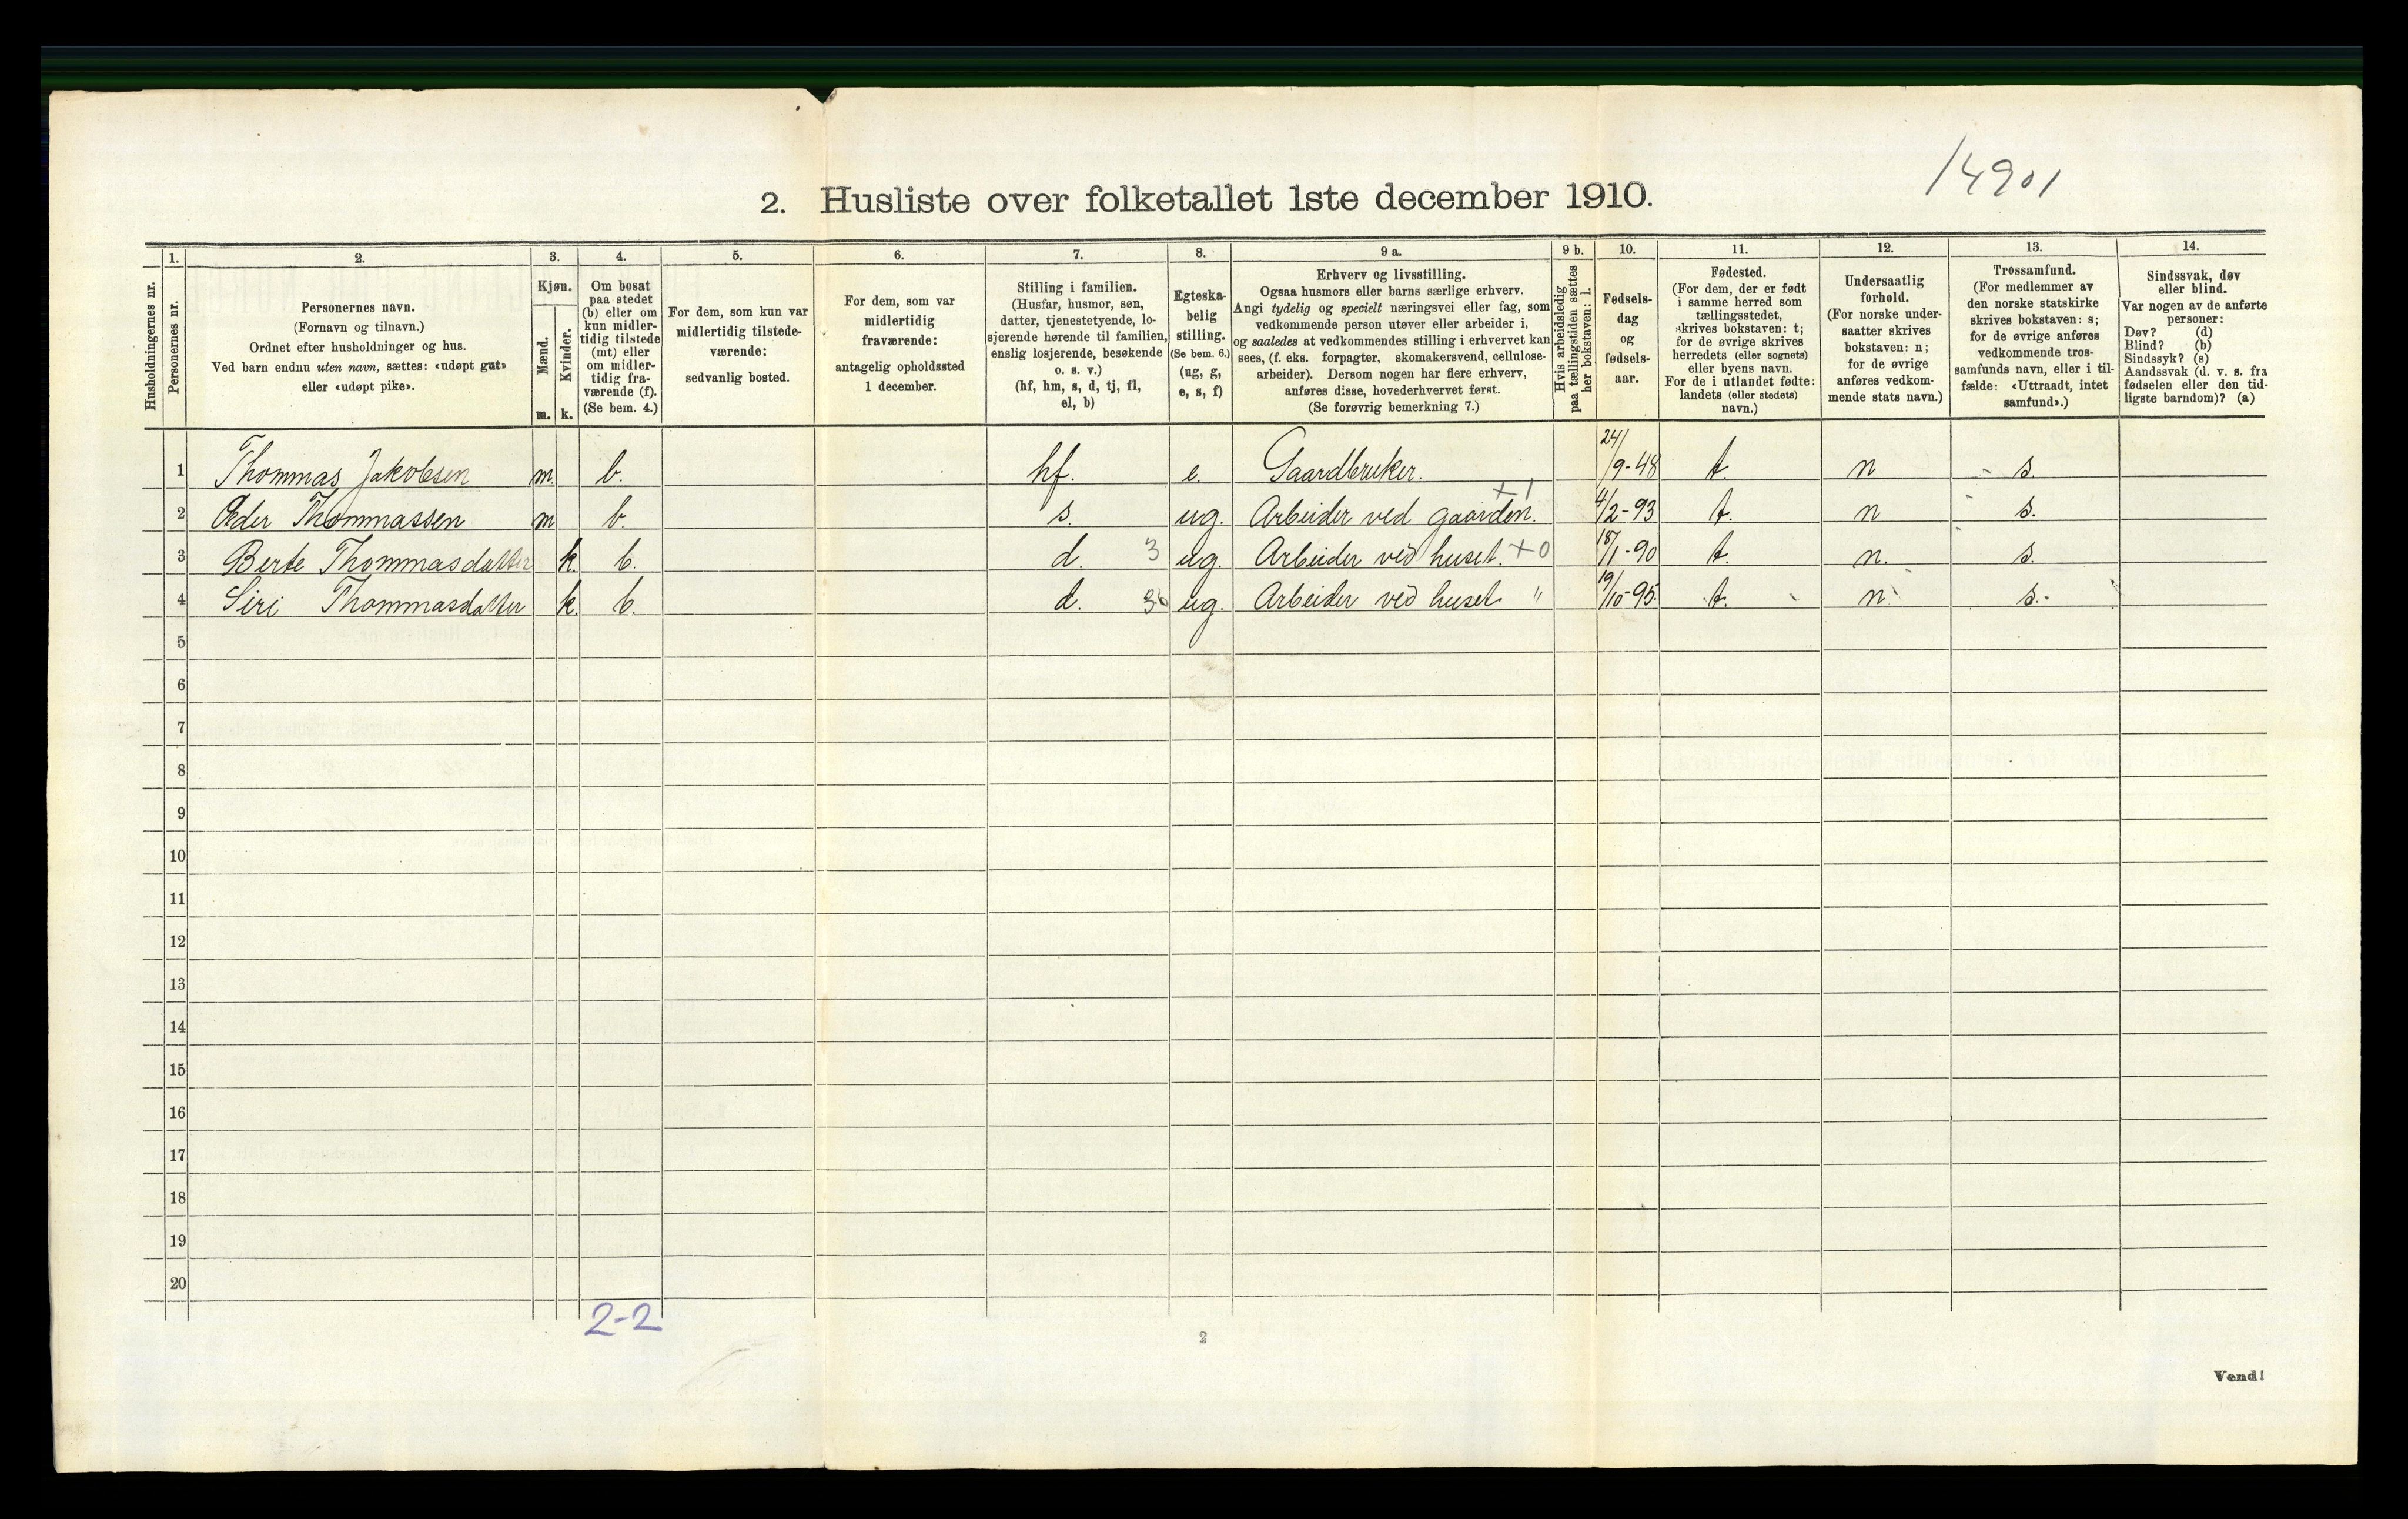 14901
2. Husliste over folketallet 1ste december 1910.
1. 2. 3. 4. 5. 6. 7. 8. 9 a. 9 b. 10. 11. 12. 13. 14.
Husholdningernes nr.
Personernes nr.
Personernes navn.
(Fornavn og tilnavn.)
Ordnet efter husholdninger og hus.
Ved barn endnu uten navn, sættes: «udøpt gut»
eller «udøpt pike».
Kjøn.
Mænd.
m.
Kvinder.
k.
Om bosat
paa stedet
(b) eller om
kun midler-
tidig tilstede
(mt) eller
om midler-
tidig fra-
værende (f).
(Se bem. 4.)
For dem, som kun var
midlertidig tilstede-
værende:
sedvanlig bosted.
For dem, som var
midlertidig
fraværende:
antagelig opholdssted
1 december.
Stilling i familien.
(Husfar, husmor, søn,
datter, tjenestetyende, lo-
sjerende hørende til familien,
enslig losjerende, besøkende
o. s. v.)
(hf, hm, s, d, tj, fl,
el, b)
Egteska-
belig
stilling.
(Se bem. 6.)
(ug, g,
e, s, f)
Erhverv og livsstilling.
Ogsaa husmors eller barns særlige erhverv.
Angi tydelig og specielt næringsvei eller fag, som
vedkommende person utøver eller arbeider i,
og saaledes at vedkommendes stilling i erhvervet kan
sees, (f. eks. forpagter, skomakersvend, cellulose-
arbeider). Dersom nogen har flere erhverv,
anføres disse, hovederhvervet først.
(Se forøvrig bemerkning 7.)
Hvis arbeidsledig
paa tællingstiden sættes
her bokstaven: l.
Fødsels-
dag
og
fødsels-
aar.
Fødested.
(For dem, der er født
i samme herred som
tællingsstedet,
skrives bokstaven: t;
for de øvrige skrives
herredets (eller sognets)
eller byens navn.
For de i utlandet fødte:
landets (eller stedets)
navn.)
Undersaatlig
forhold.
(For norske under-
saatter skrives
bokstaven: n;
for de øvrige
anføres vedkom-
mende stats navn.)
Trossamfund.
(For medlemmer av
den norske statskirke
skrives bokstaven: s;
for de øvrige anføres
vedkommende tros-
samfunds navn, eller i til-
fælde: «Uttraadt, intet
samfund».)
Sindssvak, døv
eller blind.
Var nogen av de anførte
personer:
Døv? (d)
Blind? (b)
Sindssyk? (s)
Aandssvak (d. v. s. fra
fødselen eller den tid-
ligste barndom)? (a)
1 Thommas Jakobsen m. b. hf. e. Gaardbruker. 24/9-48 t. n s.
2 Peder Thommassen m b. s. ug. Arbeider ved gaarden. +1 4/2-93 t. n s.
3 Berte Thommasdatter k. b. d. 3 ug. Arbeider ved huset. +0 18/1-90 t. n. s.
4 Siri Thommasdatter k. b. d. ug. Arbeider ved huset " 19/10-95. t. n. s.
5
6
7
8
9
10
11
12
13
14
15
16
17
18
19
20
2-2
2
Vend!